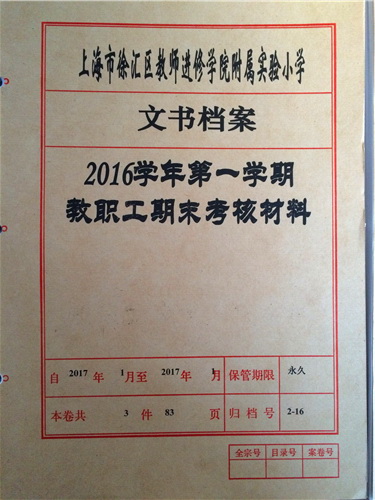 上海市徐汇区教师进修学院附属实验小学
文书档案
2016学年第一学期
教职工期末考核材料
自 2017 年 1月至 2017 年 1月 保管期限 永久
本卷共 3 件 83 页 归档号 2-16
全宗号 目录号 案卷号